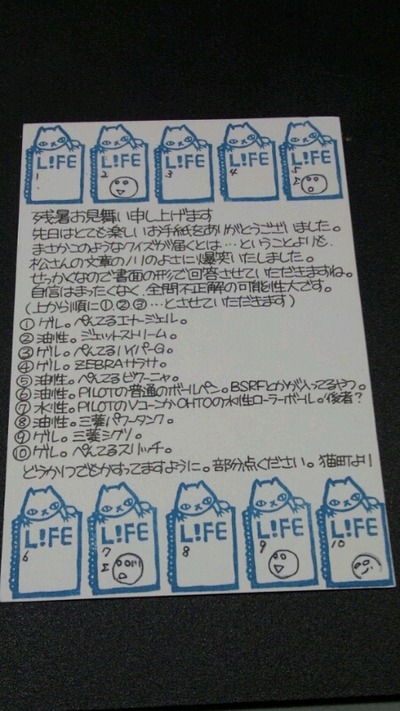 L!FE L!FE L!FE L!FE L!FE
1 2 3 4 5
残暑お見舞い申し上げます
先日はとても楽しいお手紙をありがとうございました。
まさかこのようなクイズが届くとは…ということよりも、
松さんの文章のノリのよさに爆笑いたしました。
せっかくなので書面の形で回答させていただきますね。
自信はまったくなく、全問不正解の可能性大です。
(上から順に①,②,③…とさせていただきます)
①ゲル。ぺんてるエナージェル。
②油性。ジェットストリーム。
③ゲル。ぺんてるハイパーG。
④ゲル。ZEBRAサラサ。
⑤油性。ぺんてるビクーニャ。
⑥油性。PILOTの普通のボールペン。BSRFとかが入ってるやつ。
⑦水性。PILOTのVコーンかOHTOの水性ローラーボール。後者?
⑧油性。三菱パワータンク。
⑨ゲル。三菱シグノ。
⑩ゲル。ぺんてるスリッチ。
どうかいつでもかすってますように。部分点ください。猫町より
L!FE L!FE L!FE L!FE L!FE
6 7 8 9 10